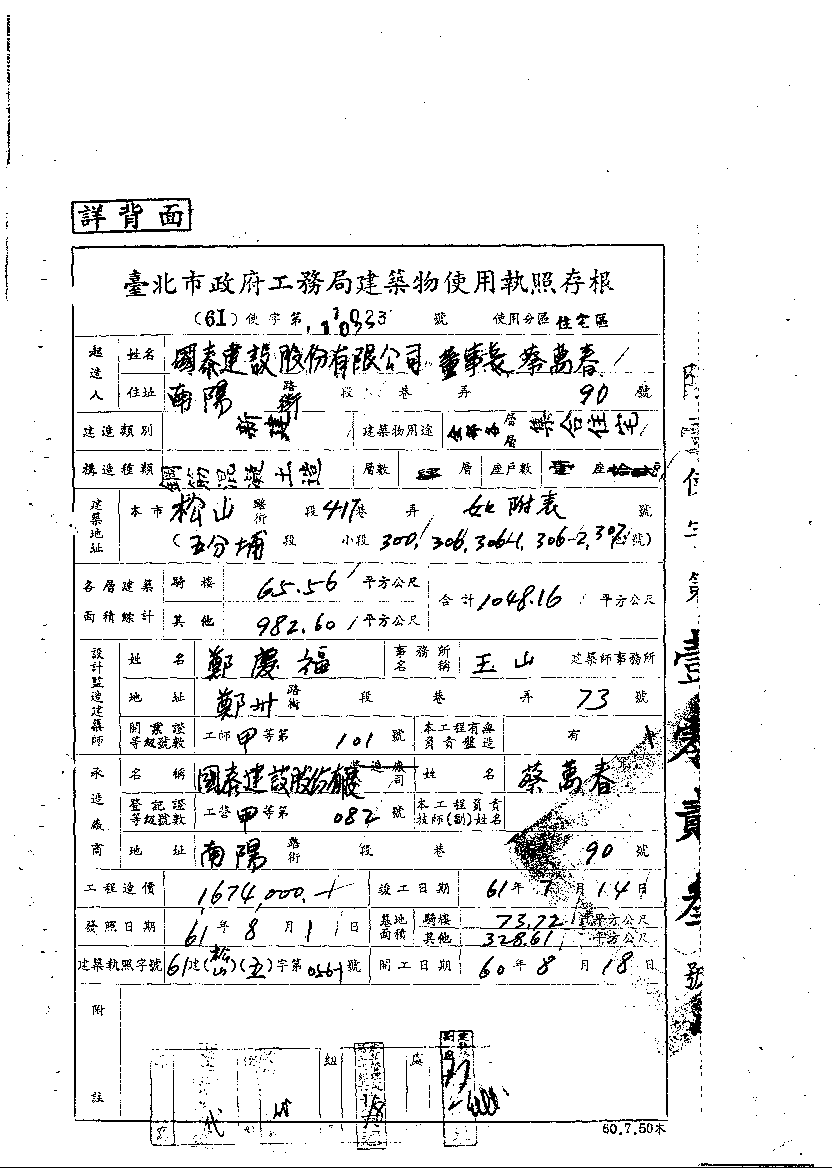 詳背面
臺北市政府工務局建築物使用執照存根
(61)使字第1023號 使用分區 住宅區
起造人 姓名 國泰建設股份有限公司 董事長 蔡萬春
住址 南陽 路街 段 巷 弄 90 號
建造類別 新建 建築物用途 集合住宅
構造種類 鋼筋混凝土造 層數 層 座戶數 壹座
建築地址 本市 松山 路街 段 417巷 弄 如附表 號
(五分埔 段 小段 300, 306, 306-1, 306-2, 307 號)
各層建築面積總計 騎樓 65.56 平方公尺 合計 1048.16 平方公尺
其他 982.60 平方公尺
設計監造建築師 姓名 鄭慶福 事務所名稱 玉山 建築師事務所
地址 鄭州 路街 段 巷 弄 73 號
開業證等級號數 工師 甲 等第 101 號 本工程有無負責監造 有
承造廠商 名稱 國泰建設股份有限 公司 姓名 蔡萬春
登記證等級號數 工營 甲 等第 082 號 本工程負責技師(副)姓名
地址 南陽 路街 段 巷 90 號
工程造價 1674,000.- 竣工日期 61年7月14日
發照日期 61年8月1日 基地面積 騎樓 73.72 平方公尺
其他 328.61 平方公尺
建築執照字號 61建(松山)(五)字第0561號 開工日期 60年8月18日
附註
組
代
60.7.50本
使字第壹零貳叁號